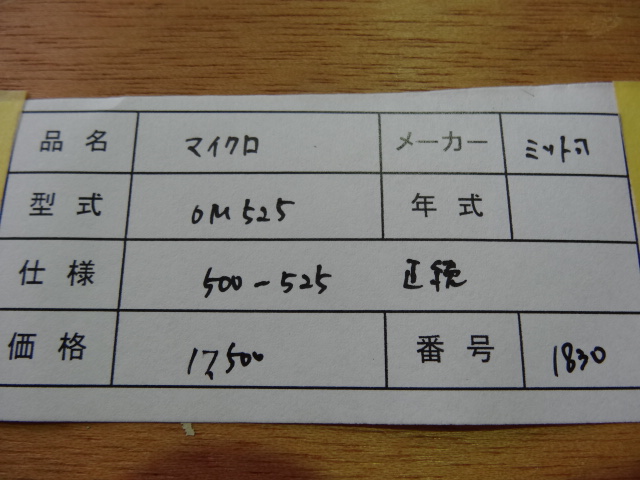 品名 マイクロ メーカー ミツトヨ
型式 OM525 年式
仕様 500-525
価格 17,500 番号 1830